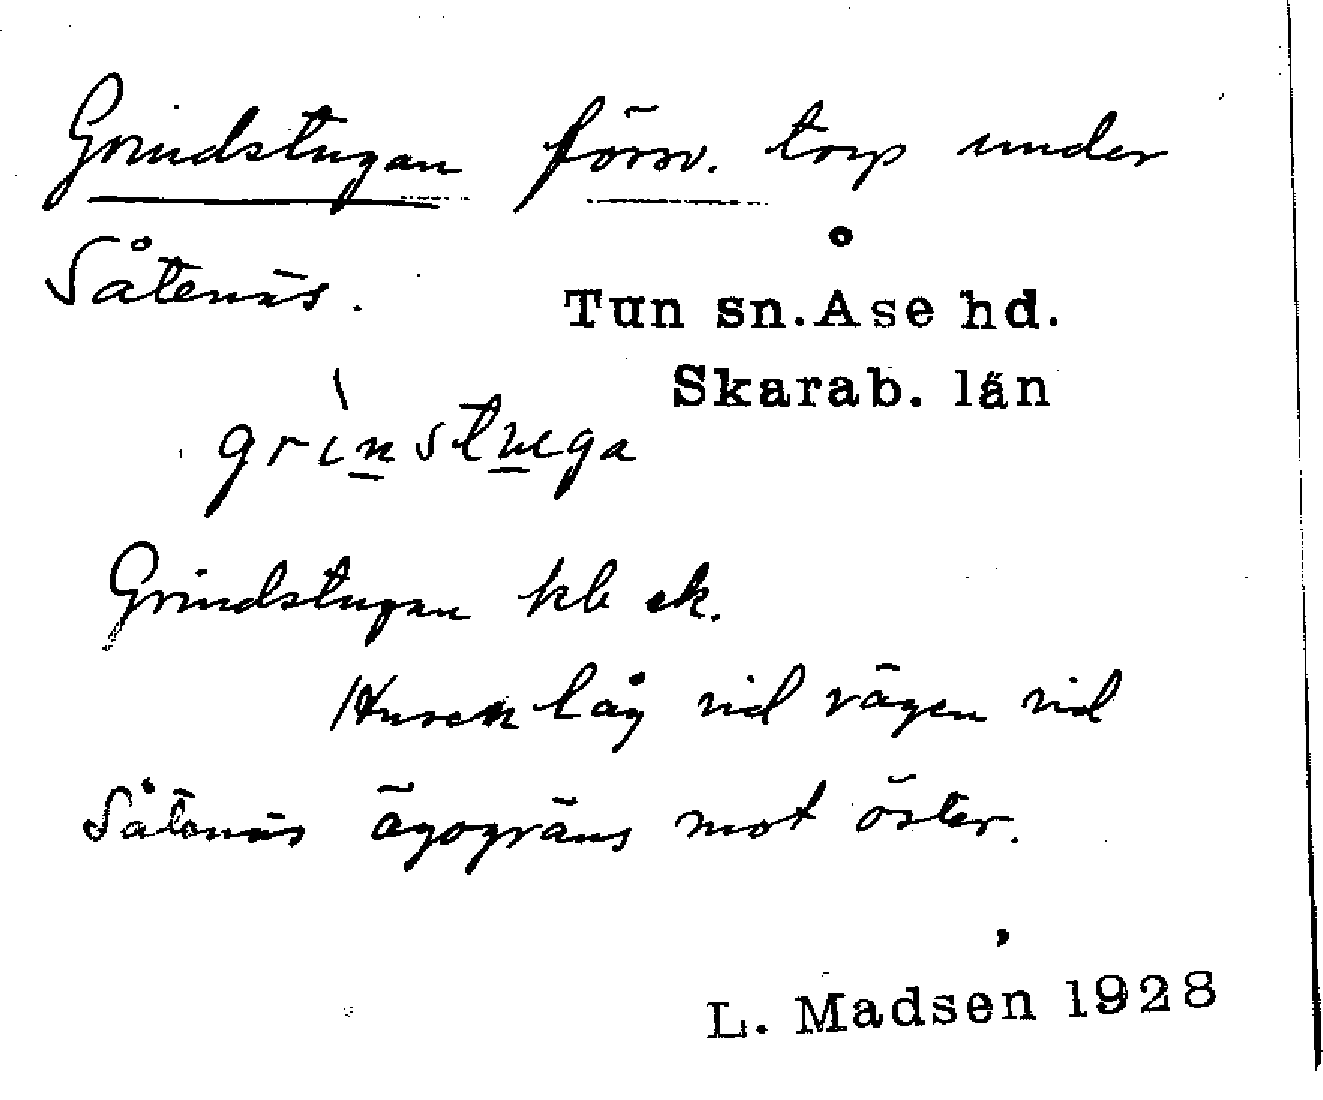 Grindstugan försv. torp under
Såtenäs.
Tun sn. Åse hd.
Skarab. län
grinstuga
Grindstugan kb ek.
Husen låg vid vägen vid
Såtenäs ägogräns mot öster.
L. Madsen 1928